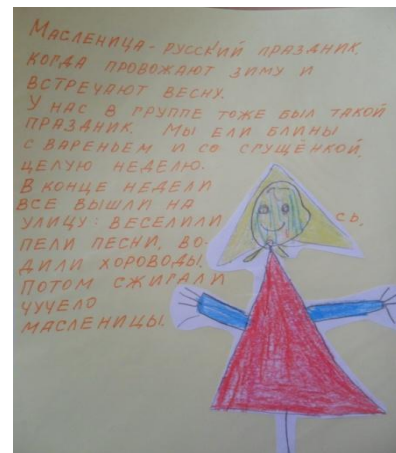 МАСЛЕНИЦА - РУССКИЙ ПРАЗДНИК,
КОГДА ПРОВОЖАЮТ ЗИМУ И
ВСТРЕЧАЮТ ВЕСНУ.
У НАС В ГРУППЕ ТОЖЕ БЫЛ ТАКОЙ
ПРАЗДНИК. МЫ ЕЛИ БЛИНЫ
С ВАРЕНЬЕМ И СО СГУЩЁНКОЙ,
ЦЕЛУЮ НЕДЕЛЮ.
В КОНЦЕ НЕДЕЛИ
ВСЕ ВЫШЛИ НА
УЛИЦУ: ВЕСЕЛИЛИ СЬ,
ПЕЛИ ПЕСНИ, ВО-
ДИЛИ ХОРОВОДЫ.
ПОТОМ СЖИГАЛИ
ЧУЧЕЛО
МАСЛЕНИЦЫ.